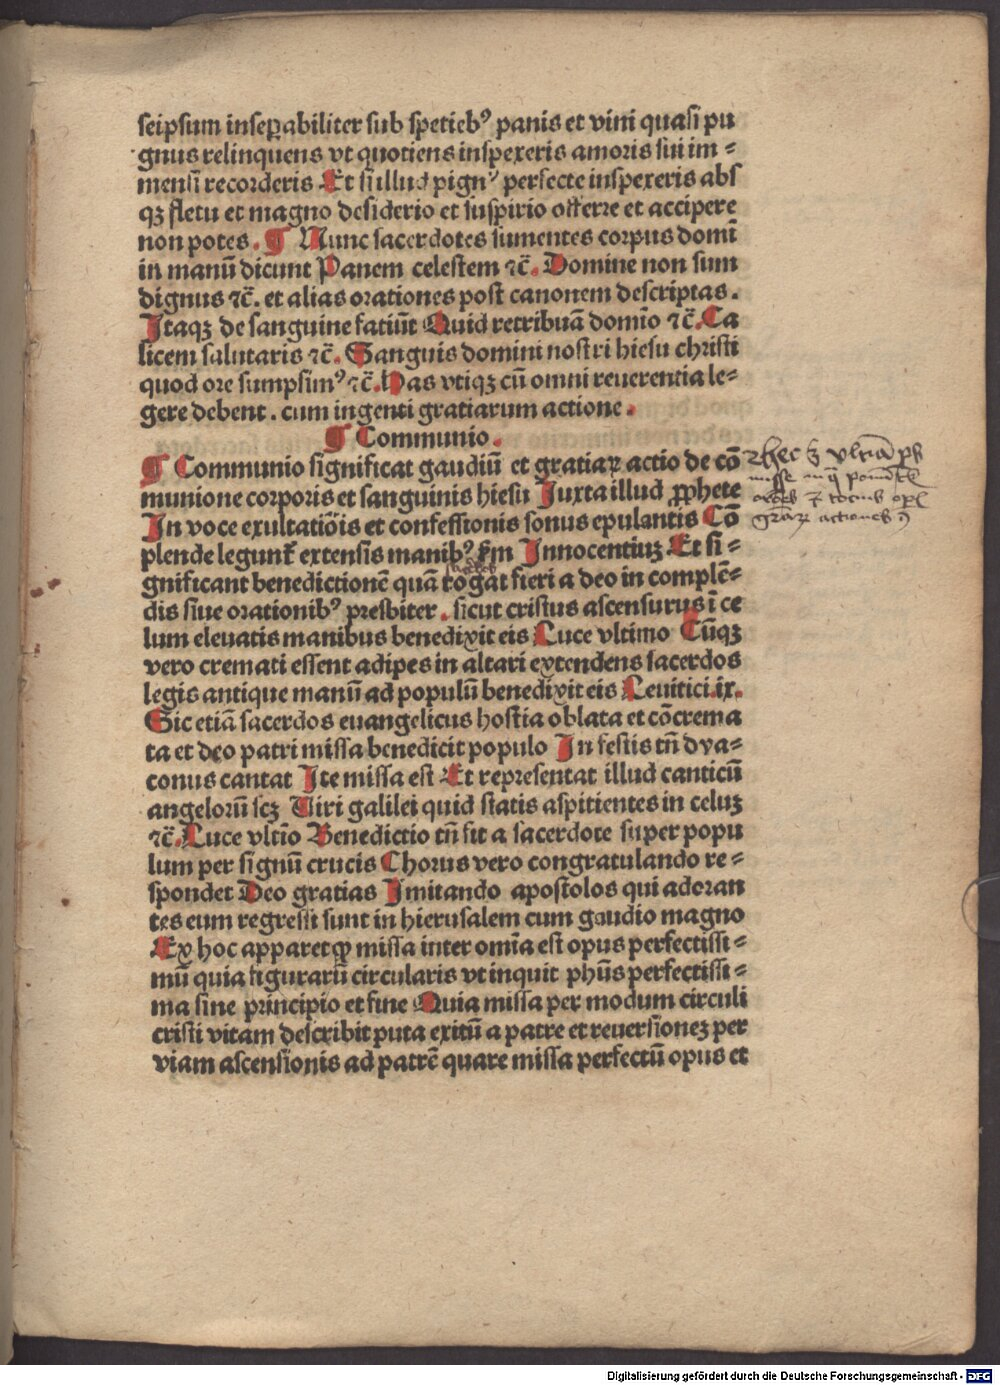 seipsum inseꝑabiliter sub spetieb⁹ panis et vini quasi pu
gnus relinquens vt quotiens inspexeris amoris sui im⸗
mensi recorderis Et si illud pign⁹ perfecte inspexeris abs
qꝫ fletu et magno desiderio et suspirio offerre et accipere
non potes. ¶ Nunc sacerdotes sumentes corpus domī
in manū dicunt Panem celestem ⁊c̄. Domine non sum
dignus ⁊c̄. et alias orationes post canonem descriptas.
Itaqꝫ de sanguine fatiūt Quid retribuā domīo ⁊c̄. Ca
licem salutaris ⁊c̄. Sanguis domini nostri hiesu christi
quod ore sumpsim⁹ ⁊c̄. Has vtiqꝫ cū omni reuerentia le⸗
gere debent. cum ingenti gratiarum actione.
¶ Communio.
¶ Communio significat gaudiū et gratiaꝝ actio de cō
munione corporis et sanguinis hiesu Iuxta illud ꝓphete
In voce exultatiōis et confessionis sonus epulantis Cō
plende legunt̄ extensis manib⁹ s̄m Innocentiuꝫ Et si⸗
gnificant benedictionē quā rogat fieri a deo in complē⸗
dis siue orationib⁹ presbiter. sicut cristus ascensurus ī ce
lum eleuatis manibus benedixit eis Luce vltimo Cūqꝫ
vero cremati essent adipes in altari extendens sacerdos
legis antique manū ad populū benedixit eis Leuitici.ix.
Sic etiā sacerdos euangelicus hostia oblata et cōcrema
ta et deo patri missa benedicit populo In festis tn̄ dya⸗
conus cantat Ite missa est Et representat illud canticū
angelorū scꝫ Viri galilei quid statis aspitientes in celuꝫ
⁊c̄. Luce vltīo Benedictio tn̄ fit a sacerdote super popu
lum per signū crucis Chorus vero congratulando re⸗
spondet Deo gratias Imitando apostolos qui adoran
tes eum regressi sunt in hierusalem cum gaudio magno
Ex hoc apparet ꝙ missa inter omīa est opus perfectissi⸗
mū quia figurarū circularis vt inquit ph̄us perfectissi⸗
ma sine principio et fine Quia missa per modum circuli
cristi vitam describit puta exitū a patre et reuersionez per
viam ascensionis ad patrē quare missa perfectū opus et
hec vltīa ps
misse in q
actiones
Digitalisierung gefördert durch die Deutsche Forschungsgemeinschaft - DFG